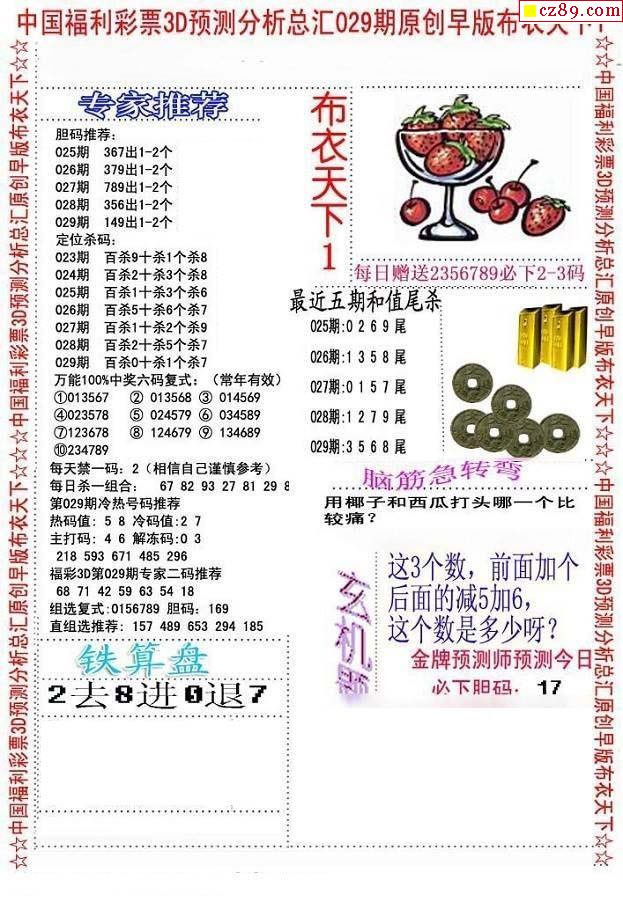 cz89.com
中国福利彩票3D预测分析总汇029期原创早版布衣天下1
☆☆中国福利彩票3D预测分析总汇原创早版布衣天下☆☆中国福利彩票3D预测分析总汇原创早版布衣天下☆☆
专家推荐
胆码推荐:
025期 367出1-2个
026期 379出1-2个
027期 789出1-2个
028期 356出1-2个
029期 149出1-2个
定位杀码:
023期 百杀9十杀1个杀8
024期 百杀2十杀3个杀8
025期 百杀1十杀3个杀6
026期 百杀5十杀6个杀7
027期 百杀1十杀2个杀9
028期 百杀2十杀5个杀7
029期 百杀0十杀1个杀7
万能100%中奖六码复式:(常年有效)
①013567 ② 013568 ③ 014569
④023578 ⑤ 024579 ⑥ 034589
⑦123678 ⑧ 124679 ⑨ 134689
⑩234789
每天禁一码:2(相信自己谨慎参考)
每日杀一组合: 67 82 93 27 81 29 8
第029期冷热号码推荐
热码值: 5 8 冷码值:2 7
主打码: 4 6 解冻码:0 3
218 593 671 485 296
福彩3D第029期专家二码推荐
68 71 42 59 63 54 18
组选复式:0156789 胆码:169
直组选推荐: 157 489 653 294 185
铁算盘
2去8进0退7
布衣天下1
每日赠送2356789必下2-3码
最近五期和值尾杀
025期:0 2 6 9 尾
026期:1 3 5 8 尾
027期:0 1 5 7 尾
028期:1 2 7 9 尾
029期:3 5 6 8 尾
脑筋急转弯
用椰子和西瓜打头哪一个比
较痛?
玄机
这3个数,前面加个
后面的减5加6,
这个数是多少呀?
金牌预测师预测今日
必下胆码. 17
☆☆中国福利彩票3D预测分析总汇原创早版布衣天下☆☆中国福利彩票3D预测分析总汇原创早版布衣天下☆☆